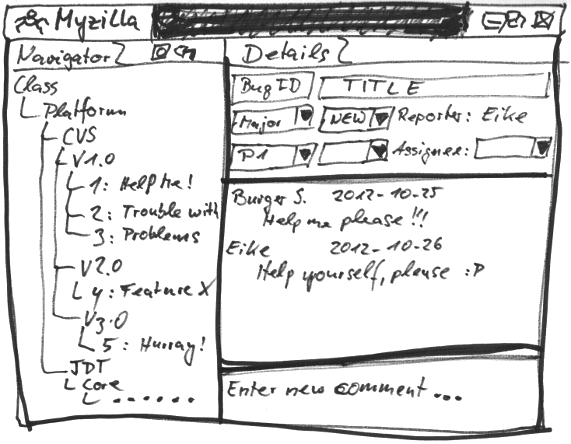 Myzilla
Navigator
Class
Platform
CVS
V1.0
1: Help me!
2: Trouble with
3: Problems
V2.0
4: Feature X
V3.0
5: Hurray!
JDT
Core
......
Details
Bug ID TITLE
Major NEW Reporter: Eike
P1 Assignee:
Burger S. 2012-10-25
Help me please!!!
Eike 2012-10-26
Help yourself, please :P
Enter new comment...